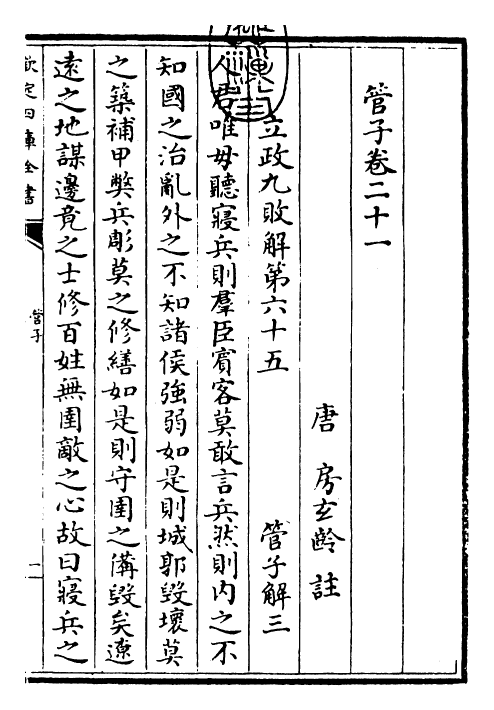 管子卷二十一
唐 房玄齡 註
立政九敗解第六十五 管子解三
人君唯毋聽寢兵則羣臣賓客莫敢言兵然則內之不
知國之治亂外之不知諸侯強弱如是則城郭毀壞莫
之築補甲弊兵彫莫之修繕如是則守圉之備毀矣遼
遠之地謀邊竟之士修百姓無圉敵之心故曰寢兵之
欽定四庫全書
管子
一